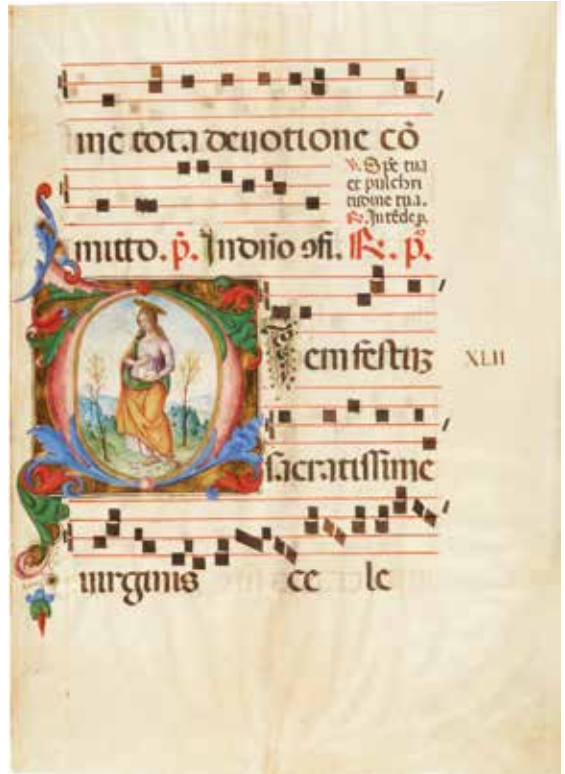 me tota deuotione cō
V. Spē tua
et pulchri
tudine tua.
R. Intēde p.
mitto. p̄. In
R. p̄.
DIem festuz
XLII
sacratissime
uirginis ce le